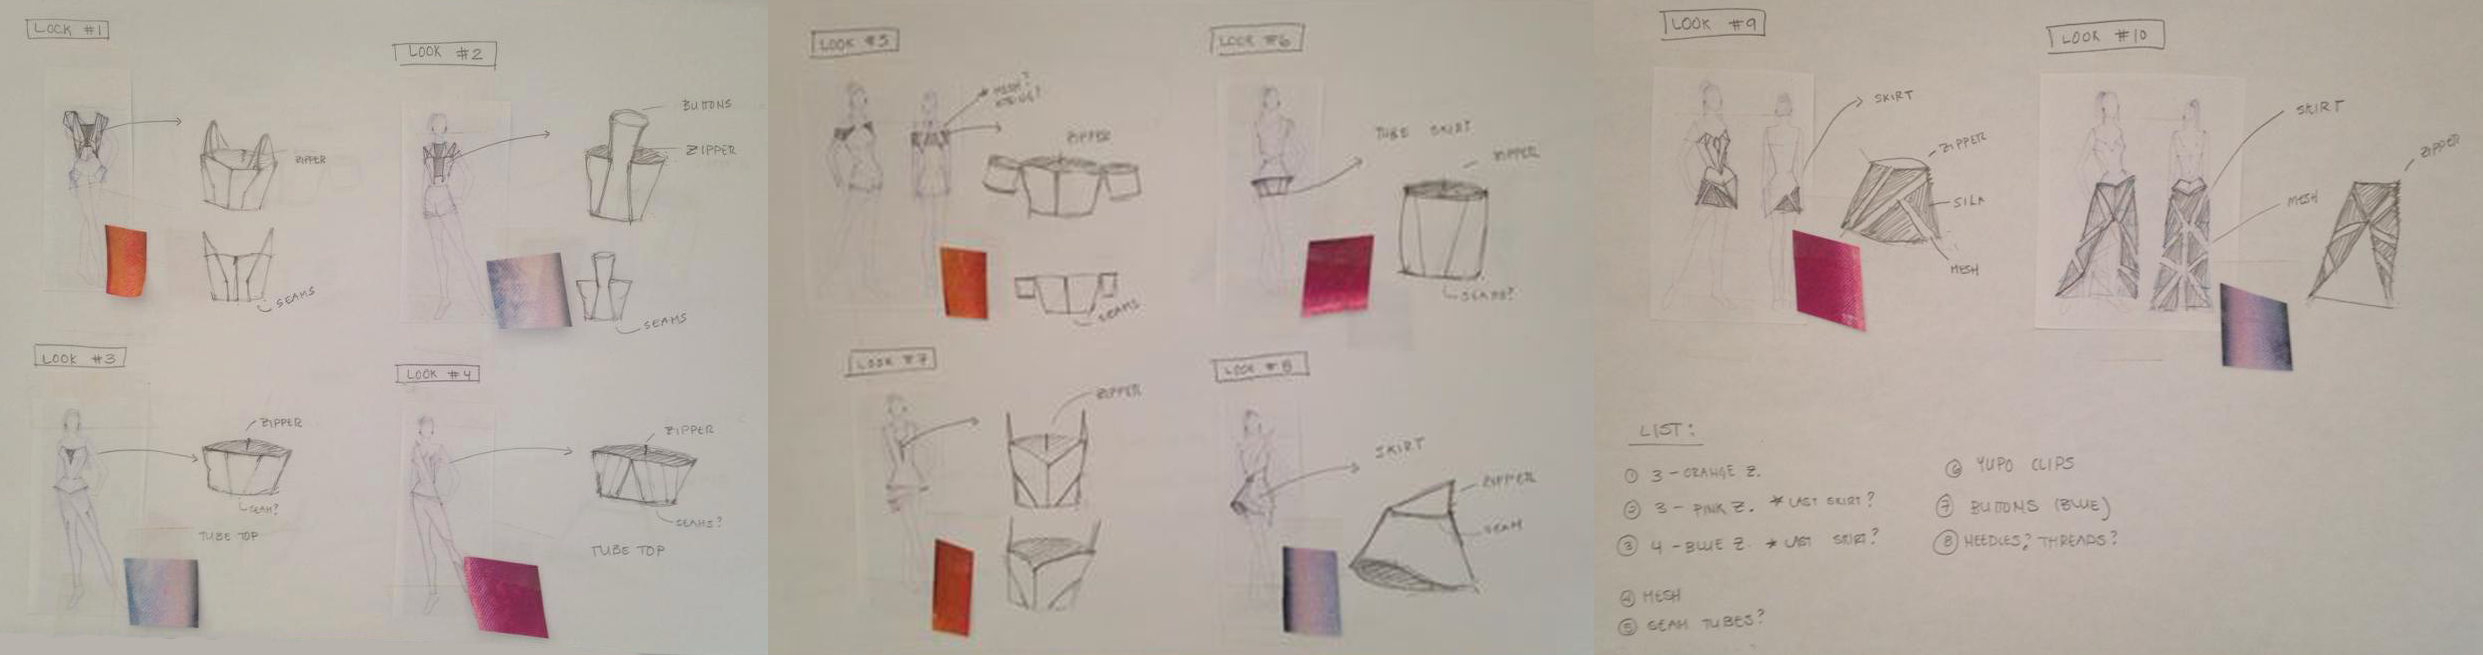 LOOK #1
ZIPPER
SEAMS
LOOK #2
BUTTONS
ZIPPER
SEAMS
LOOK #3
ZIPPER
SEAM?
TUBE TOP
LOOK #4
ZIPPER
SEAMS?
TUBE TOP
LOOK #5
* MESH?
ZIPPER
SEAMS
LOOK #6
TUBE SKIRT
ZIPPER
SEAMS?
LOOK #7
ZIPPER
LOOK #8
SKIRT
ZIPPER
SEAM
LOOK #9
SKIRT
ZIPPER
SILK
MESH
LOOK #10
SKIRT
MESH
ZIPPER
LIST:
① 3 - ORANGE Z.
② 3 - PINK Z. * LAST SKIRT?
③ 4 - BLUE Z. * LAST SKIRT?
④ MESH
⑤ SEAM TUBES?
⑥ YUPO CLIPS
⑦ BUTTONS (BLUE)
⑧ NEEDLES? THREADS?